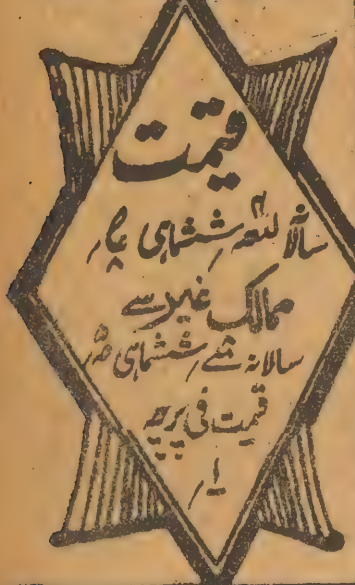 قیمت
سالانہ للعہ؍ ششماہی عہ؍
ممالک غیر سے
سالانہ ششماہی
قیمت فی پرچہ
۱؍